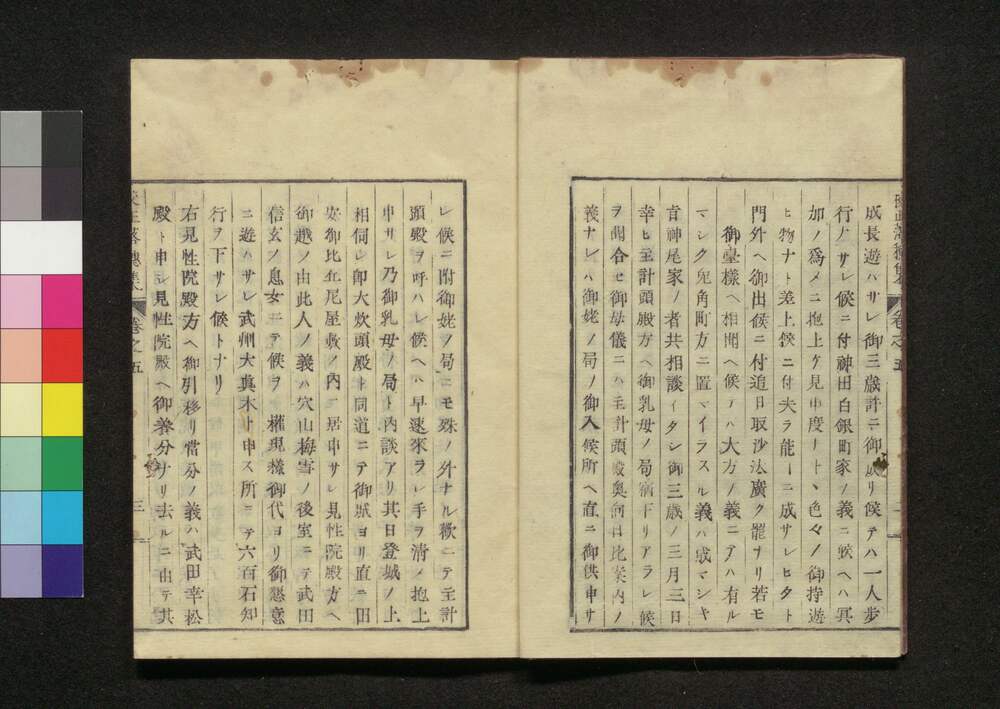 成長遊ハサレ御三歳計ニ御成リ候テハ一人歩
行ナサレ候ニ付神田白銀町家ノ義ニ候ヘハ冥
加ノ爲メニ抱上ケ見申度リトヽ色々ノ御持遊
ヒ物ナト差上候ニ付夫ラ能ーニ成サレヒタト
門外ヘ御出候ニ付追日取沙法廣ク罷ナリ若モ
御臺樣ヘ相聞ヘ候テハ大方ノ義ニアハ有ル
マシク兎角町方ニ置マイラスル義ハ成マシキ
旨神尾家ノ者共相談イタシ御三歳ノ三月三日
幸ヒ主計頭殿方ヘ御乳母ノ局宿下リアラレ候
ヲ聞合セ御母儀ニハ主計頭殿奥向ハ比案内ノ
義ナレハ御姥ノ局ノ御入候所ヘ直ニ御供申サ
卷之五
レ候ニ附御姥ノ局ニモ殊ノ外ナル歡ニテ主計
頭殿ヲ呼ハレ候ヘハ早速來ラレ手ヲ清メ抱上
申サレ乃御乳母ノ局ト内談アリ其日登城ノ上
相伺レ卽大炊頭殿ト同道ニテ御城ヨリ直ニ田
安御比丘尼屋敷ノ内ニ居申サレ見性院殿方ヘ
御越ノ由此人ノ義ハ穴山梅雪ノ後室ニテ武田
信玄ノ息女ニテ候ヲ 權現樣御代ヨリ御懇意
ニ遊ハサレ武州大眞木ト申ス所ニテ六百石知
行ヲ下サレ候トナリ
右見性院殿方ヘ御引移リ當分ノ義ハ武田幸松
殿ト申シ見性院殿ヘ御養分ナリ去ルニ由テ其
卷之五
三